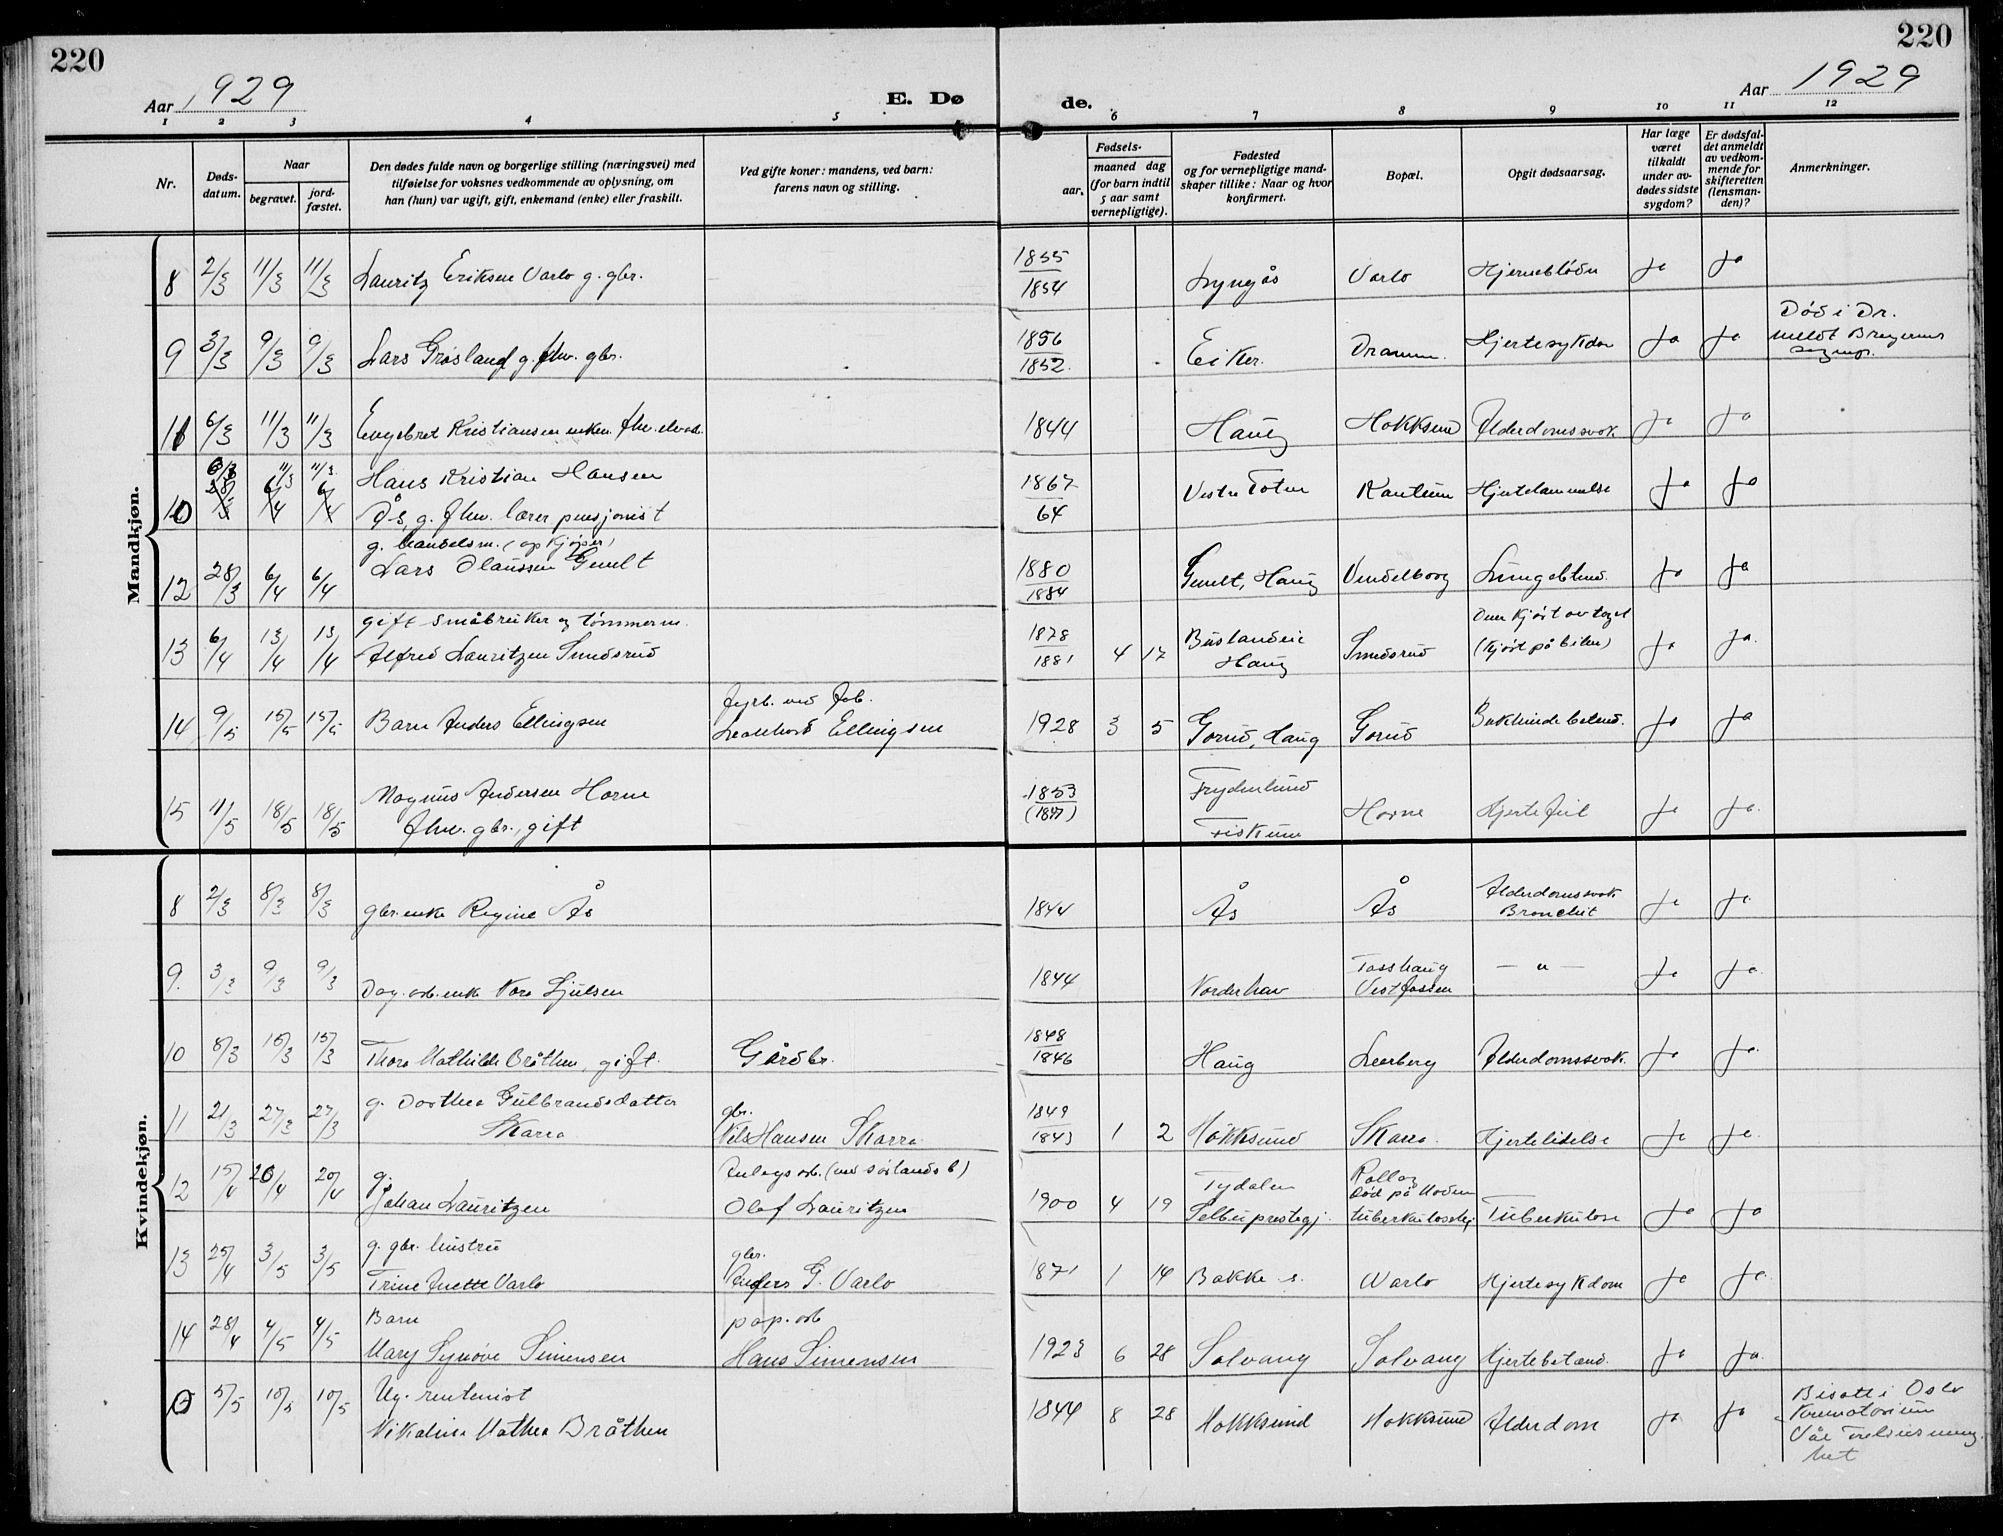 220
220
Aar 1929
E. Dø
de.
Aar 1929
1 2 3 4 5 6 7 8 9 10 11 12
Nr.
Døds-
datum.
Naar
begravet.
jord-
fæstet.
Den dødes fulde navn og borgerlige stilling (næringsvei) med
tilføielse for voksnes vedkommende av oplysning, om
han (hun) var ugift, gift, enkemand (enke) eller fraskilt.
Ved gifte koner: mandens, ved barn:
farens navn og stilling.
Fødsels-
aar.
maaned dag
(for barn indtil
5 aar samt
vernepligtige).
Fødested
og for vernepligtige mand-
skaper tillike: Naar og hvor
konfirmert.
Bopæl.
Opgit dødsaarsag.
Har læge
været
tilkaldt
under av-
dødes sidste
sygdom?
Er dødsfal-
det anmeldt
av vedkom-
mende for
skifteretten
(lensman-
den)?
Anmerkninger.
Mandkjøn.
8 2/3 11/3 11/3 Lauritz Eriksen Varlo g. gbr. 1855 1854 Lyngås Varlo Hjerneblødn ja ja
9 3/3 9/3 9/3 Lars Grøsland g. fhv. gbr. 1856 1852 Eiker. Dramm. Hjertesykdom ja ja Død i Dr.
meldt Bragernes
sognepr.
11 6/3 11/3 11/3 Engebret Kristiansen enkem. fhv. 1844 Haug Hokksund Alderdomssvak ja ja
10 6/3 11/3 11/3 Hans Kristian Hansen
Ås, g. fhv. lærer pensjonist 1867 64 Vestre Toten Hjertelammelse ja ja
g. handelsm. (opkjøper)
12 28/3 6/4 6/4 Lars Olaussen Gunelt 1880 1884 Haug Vendelborg Lungebetend. ja ja
gift småbruker og tømmerm.
13 6/4 13/4 13/4 Alfred Lauritzen Smedsrud 1878 1881 4 17 Buslandeie
Haug Smedsrud Overkjørt av toget
(kjørt på bilen) ja ja.
14 9/5 15/5 15/5 Barn Anders Ellingsen fyrb. ved fab.
Ellingsen 1928 3 5 Gorud, Haug Gorud ja ja
15 11/5 18/5 18/5 Magnus Andersen Horne
fhv. gbr., gift 1853 (1847) Frydenlund
Fiskum Horne Hjertefeil ja ja.
Kvindekjøn.
8 2/3 8/3 8/3 gbr. enke Regine Ås 1844 Ås Ås Alderdomssvak
Bronchit ja ja
9. 3/3 9/3 9/3 Dag. arb. enke Kari Sjulsen 1844 Norderhov
Vestfossen — " — ja ja.
10 8/3 15/3 15/3 Thora Mathilde Bråthen, gift. Gårdbr. 1848 1846 Haug Leerberg Alderdomssvak. ja ja.
11 21/3 27/3 27/3 g. Dorthea Gulbrandsdatter
Skarra gbr.
Nils Hansen Skarra. 1849 1843 1 2 Hokksund Skarra. Hjertelidelse ja ja.
12 15/4 20/4 20/4 g.
Johan Lauritzen Anlegsarb. (ved sørlandsb)
Olaf Lauritzen 1900 4 19 Tydalen
Selbu prestegj. Rollag
død på Modum
tuberkuloseh. Tuberkulose ja ja
13 25/4 3/5 3/5 g. gbr. hustru
Trine Anette Varlo gbr.
Anders G. Varlo 1871 1 14 Bakke s. Varlo Hjertesykdom ja ja.
14 28/4 4/5 4/5 Barn
Mary Synøve Simensen pap. arb
Hans Simensen 1923 6 28 Solvang Solvang Hjertebetænd. ja ja.
5/5 10/5 10/5 Ug. rentenist
Nikoline Mathea Bråthen 1844 8 28 Hokksund Hokksund Alderdom ja ja Bisatt i Oslo
Krematorium
Vår Frelsers menig-
het